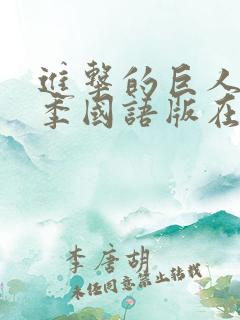 進擊的巨人
季國語版在
李唐胡
未經同意禁止轉載